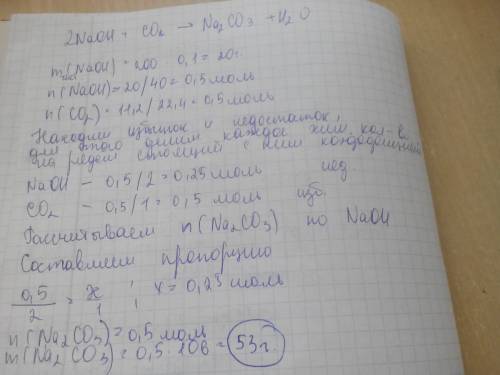 2NaOH + CO₂ → Na₂CO₃ + H₂O
m (NaOH) = 200 0,1 = 20г.
n(NaOH) = 20/40 = 0,5 моль
n(CO₂) = 11,2/22,4 = 0,5 моль
Находим избыток и недостаток,
для этого делим каждое хим. кол-во
на стоящий с ним коэффициент
NaOH – 0,5/2 = 0,25 моль нед.
CO₂ – 0,5/1 = 0,5 моль изб.
Рассчитываем n(Na₂CO₃) по NaOH
Составляем пропорцию
0,5/2 = x/1 ; x = 0,25 моль
n(Na₂CO₃) = 0,5 моль
m(Na₂CO₃) = 0,5 · 106 = 53г.